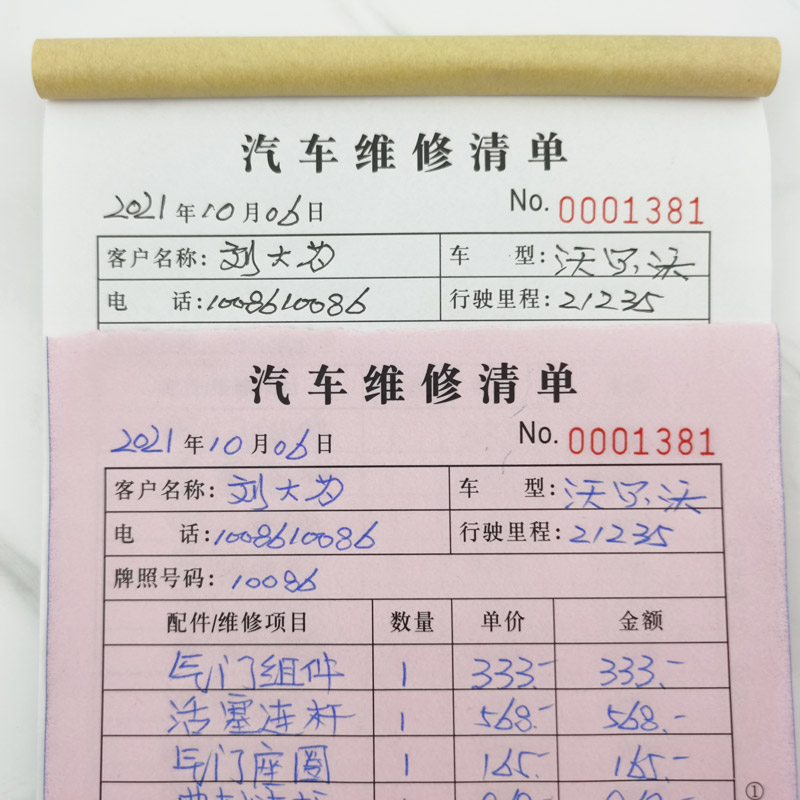 汽车维修清单
2021年10月06日 No. 0001381
客户名称: 刘大为 车 型: 沃尔沃
电 话: 1008610086 行驶里程: 21235
汽车维修清单
2021年10月06日 No. 0001381
客户名称: 刘大为 车 型: 沃尔沃
电 话: 1008610086 行驶里程: 21235
牌照号码: 10086
配件/维修项目 数量 单价 金额
气门组件 1 333.- 333.-
活塞连杆 1 568.- 568.-
气门座圈 1 165.- 165.-
①